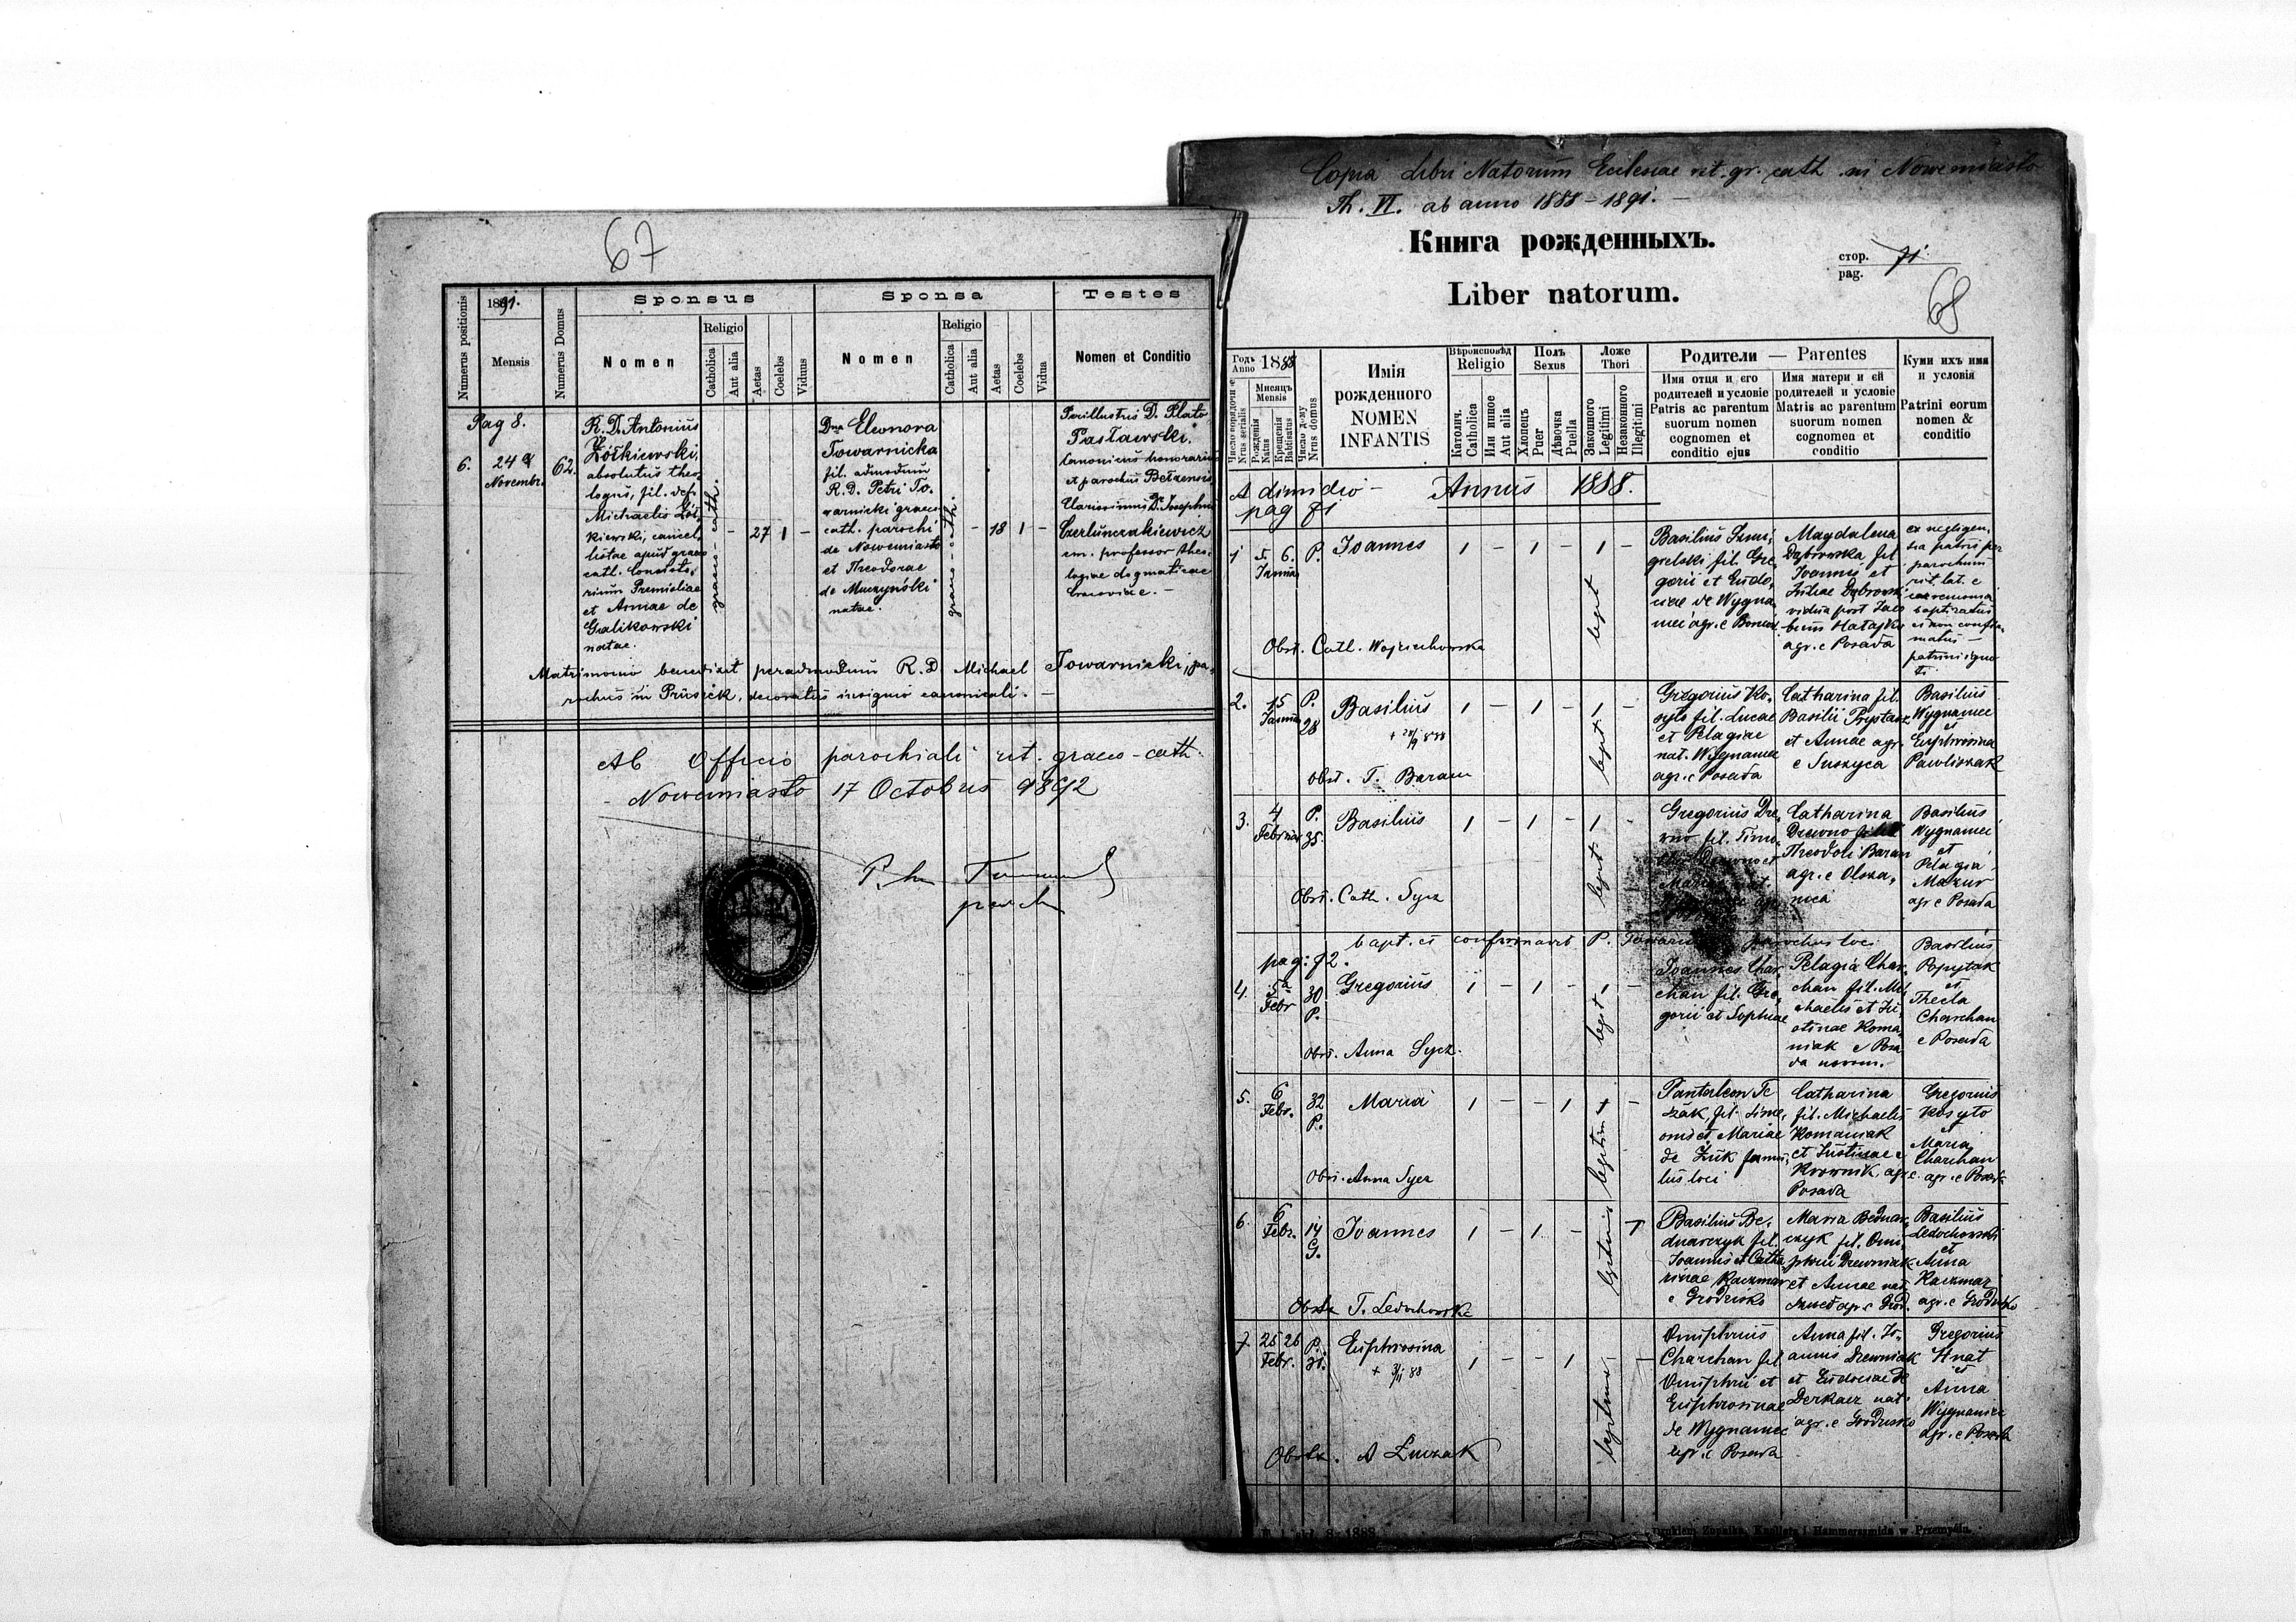 67
1891.
Numerus positionis
Mensis
Numerus Domus
Sponsus
Nomen
Religio
Catholica
Aut alia
Aetas
Coelebs
Viduus
Sponsa
Nomen
Religio
Catholica
Aut alia
Aetas
Coelebs
Vidua
Testes
Nomen et Conditio
Pag 8.
6.
24
Novembr.
62.
R. D. Antonius
Żółkiewski,
absolutus theo-
logus, fil. def.
Michaelis Żół-
kiewski, cancel-
listae apud graeco
cath. Consisto-
rium Premisliae
et Annae de
Galikowski
natae.
graeco-cath.
- 27 1 -
Dna Eleonora
Towarnicka
fil. admodum
R. D. Petri To-
warnicki graeco
cath. parochi
de Nowemiasto
et Theodorae
de Muczyński
natae.
graeco-cath.
- 18 1 -
Perillustris D. Plato
Pasławski,
Canonicus honorarius
et parochus Bełzensis
Clarissimus Dr. Josephus
Czerlunczakiewicz
em. professor theo-
logiae dogmaticae
Cracoviae. -
Matrimonio benedixit peradmodum R. D. Michael Towarnicki, pa-
rochus in Prusiek, decoratus insignio canonicali. -
Ab Officio parochiali rit. graeco-cath.
Nowemiasto 17 Octobris 1892
Copia Libri Natorum Ecclesiae rit. gr. cath. in Nowemiasto
Th. VI. ab anno 1888 - 1891. -
Книга рожденныхъ.
стор.
pag.
71
Liber natorum.
68
Годъ
Anno
1888
Число порядочн е
Nrus serialis
Мисяцъ
Mensis
Рожденія
Natus
Крещенія
Babtisatus
Число дому
Nrus domus
Имія
рожденного
NOMEN
INFANTIS
Вѣроисповѣд
Religio
Католич.
Catholica
Или инное
Aut alia
Полъ
Sexus
Хлопецъ
Puer
Дѣвочка
Puella
Ложе
Thori
Законного
Legitimi
Незаконного
Illegitimi
Родители — Parentes
Имя отця и его
родителей и условіе
Patris ac parentum
suorum nomen
cognomen et
conditio ejus
Имя матери и ей
родителей и условіе
Matris ac parentum
suorum nomen
cognomen et
conditio
Куми ихъ имя
и условія
Patrini eorum
nomen &
conditio
A dimidio -
pag 71
Annus 1888.
1
5. 6.
Januar
P.
Joannes
1 - 1 - 1 -
legit
Basilius Szmi-
grelski fil. Gre-
gorii et Eudo-
ciae de Wygna-
niec agr. e Boniow
Magdalena
Dąbrowska fil
Joannis et
Juliae Dąbrowski
vidua post Jaco
bum Hatajko
agr. e Posada
ex negligen-
tia patris per
parochum
rit. lat. e
caeremonia
baptizatus
et non confir-
matus -
patrini igno-
ti
Obst. Cath. Wojciechowska
2.
15
Januar
P.
28
Basilius
1 - 1 - 1 -
legit
Gregorius Ko-
syło fil. Lucae
et Pelagiae
nat. Wygnaniec
agr. e Posada
Catharina fil.
Basilii Prystasz
et Annae agr.
e Suszyca
Basilius
Wygnaniec
et
Euphrosina
Pawliszak
Obst. T. Baran
3.
4
Februar
P.
35.
Basilius
1 - 1 - 1 -
legit
Gregorius Dre-
wno fil. Timo-
Catharina
Drewno fil
Theodoli Baran
agr. e Olsza-
nica
Basilius
Wygnaniec
et
Pelagia
Mazur
agr. e Posada
Obst. Cath. Sycz
bapt. et confirmavit P. parochus loci
pag: 72.
4.
5
Febr
30
P.
Gregorius
1 - 1 - 1 -
legit
Joannes Char-
chan fil. Gre-
gorii et Sophiae
Pelagia Char-
chan fil. Mi-
chaelis et Ju-
stinae Roma-
niak e Posa
da novom.
Basilius
Popytak
et
Thecla
Charchan
e Posada
Obst. Anna Sycz.
5.
6
Febr.
32
P.
Maria
1 - - 1 1 -
legitim
Pantaleon Te
żak, fil. Sime-
onis et Mariae
de Żuk famu-
lus loci
Catharina
fil. Michaelis
Romaniak
et Justinae e
Krownik, agr. e
Posada
Gregorius
Kosyło
et
Maria
Charchan
agr. e Posada
Obst. Anna Sycz
6.
6
Febr.
14
G.
Joannes
1 - 1 -
legitimi
Basilius Be-
dnarczyk fil.
Joannis et Catha
rinae Kaczmar
e Grodzisko
Maria Bednar-
czyk fil. Onu-
phrii Drewniak
et Annae nat
Szwed agr. e Grod.
Basilius
Ledochowski
et
Anna
Kaczmar
agr. e Grodzisko
Obstx T. Ledochowska
7.
25 26
Febr.
P.
31.
Euphrosina
1 - - 1 - -
legitima
Onuphrius
Charchan fil
Onuphrii et
Euphrosinae
de Wygnaniec
agr. e Posada
Anna fil. Jo-
annis Drewniak
et Eudociae de
Derkacz nat.
agr. e Grodzisko
Gregorius
Hnat
et
Anna
Wygnaniec
agr. e Posada
Obstx. A Łuczak
Drukiem Żupnika, Knollera i Hammerszmida w Przemyślu.